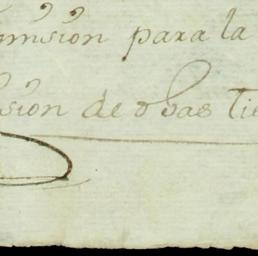 mision para la
sion de obas Tie